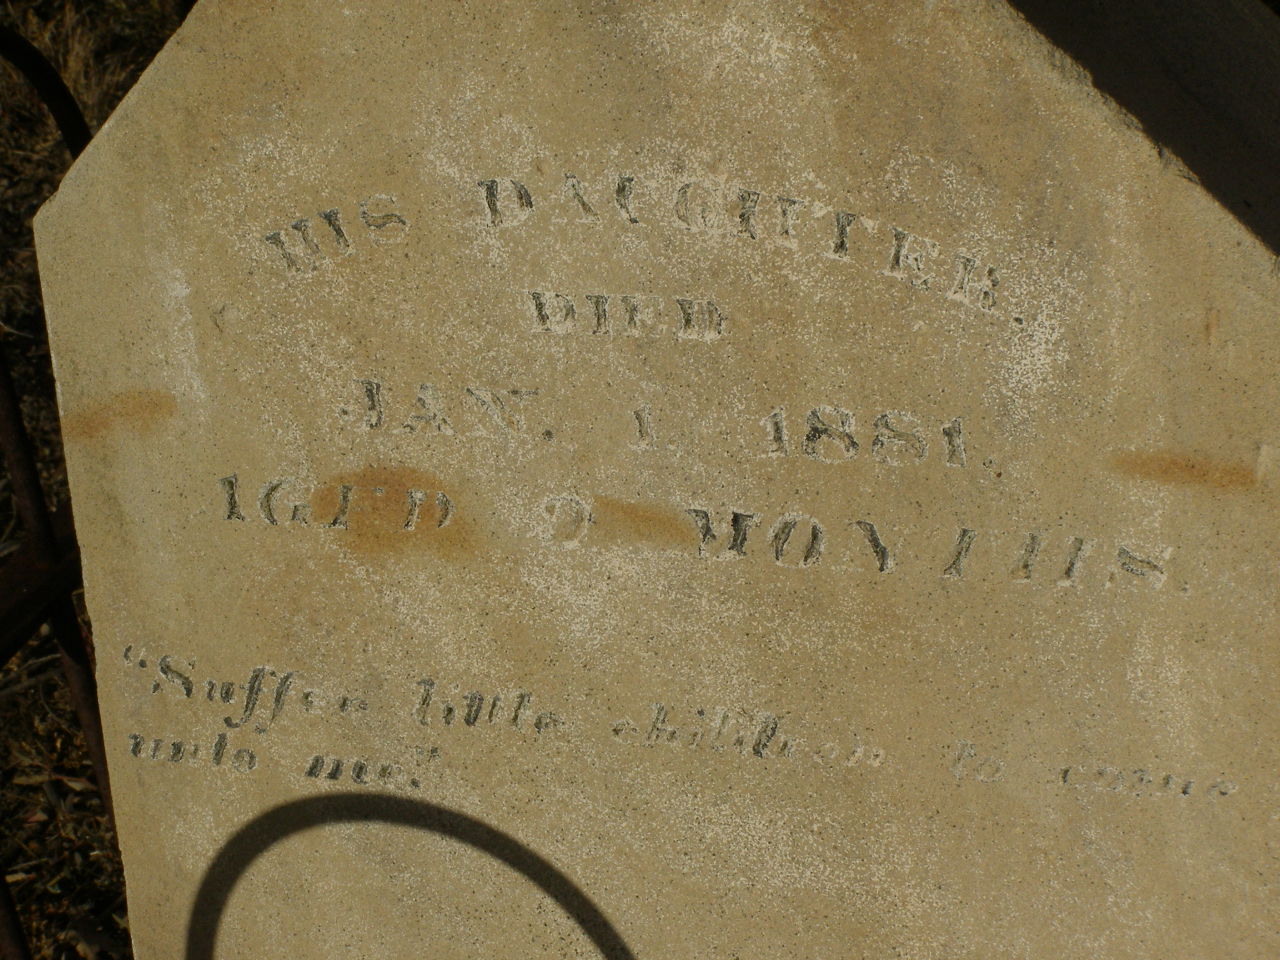 HIS DAUGHTER
DIED
JAN. 1. 1881.
AGED 9 MONTHS.
"Suffer little children to come
unto me."